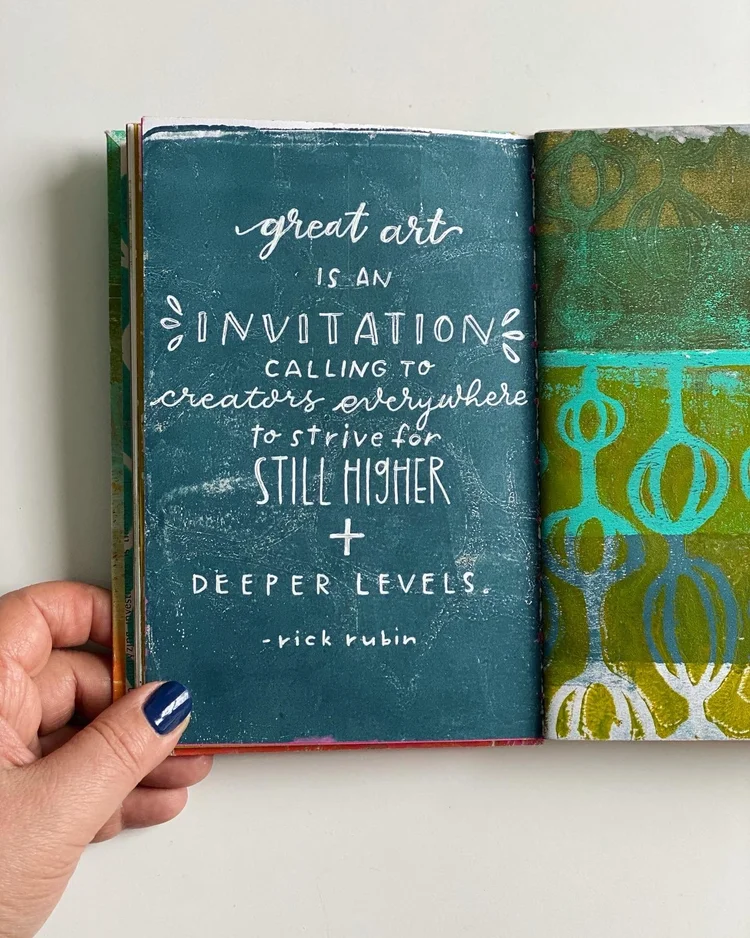 great art
IS AN
INVITATION
CALLING TO
creators everywhere
to strive for
STILL HIGHER
+
DEEPER LEVELS.
-rick rubin